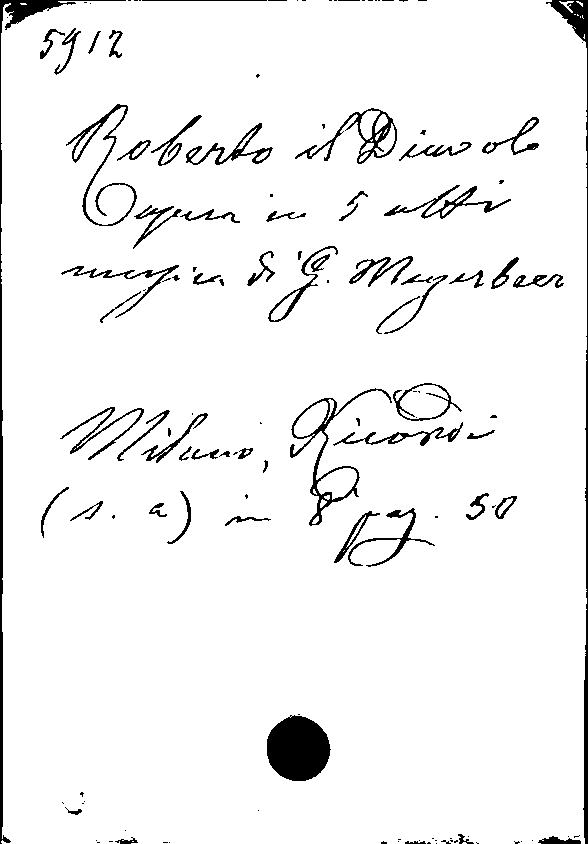 5912
Roberto il Diavolo
Opera in 5 atti
musica di G. Meyerbeer
Milano, Ricordi
(s. a) in 8° pag. 50